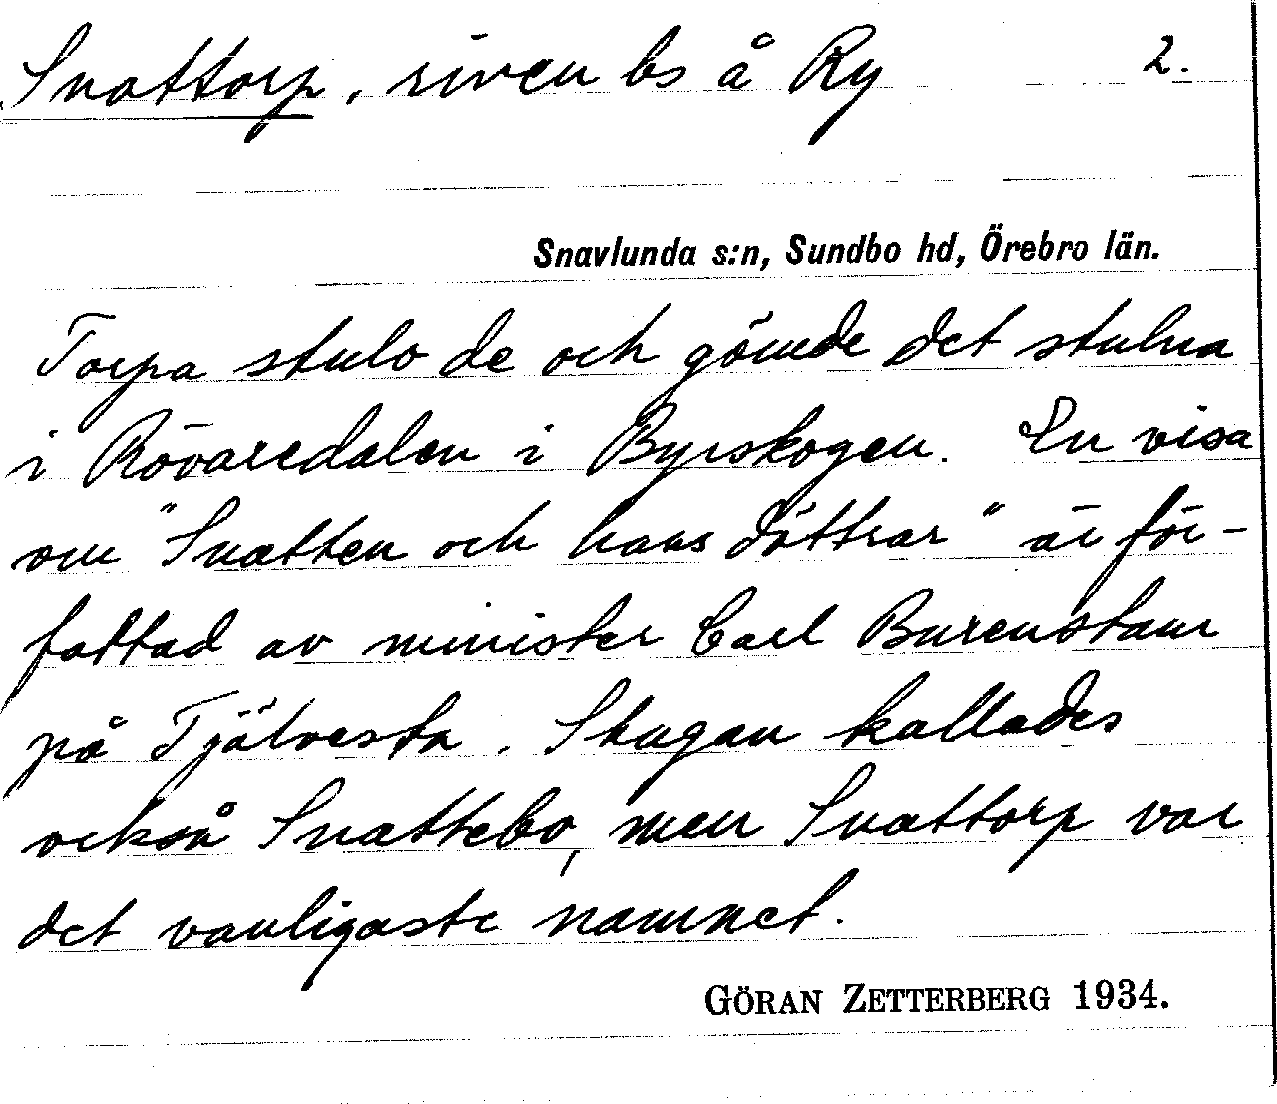 Snattorp, riven bs å Ry 2.
Snavlunda s:n, Sundbo hd, Örebro län.
Torpa stulo de och gömde det stulna
i Rövaredalen i Byrskogen. En visa
om "Snatten och hans döttrar" är för-
fattad av minister Carl Burenstam
på Tjälvesta. Stugan kallades
också Snattebo, men Snattorp var
det vanligaste namnet.
GÖRAN ZETTERBERG 1934.